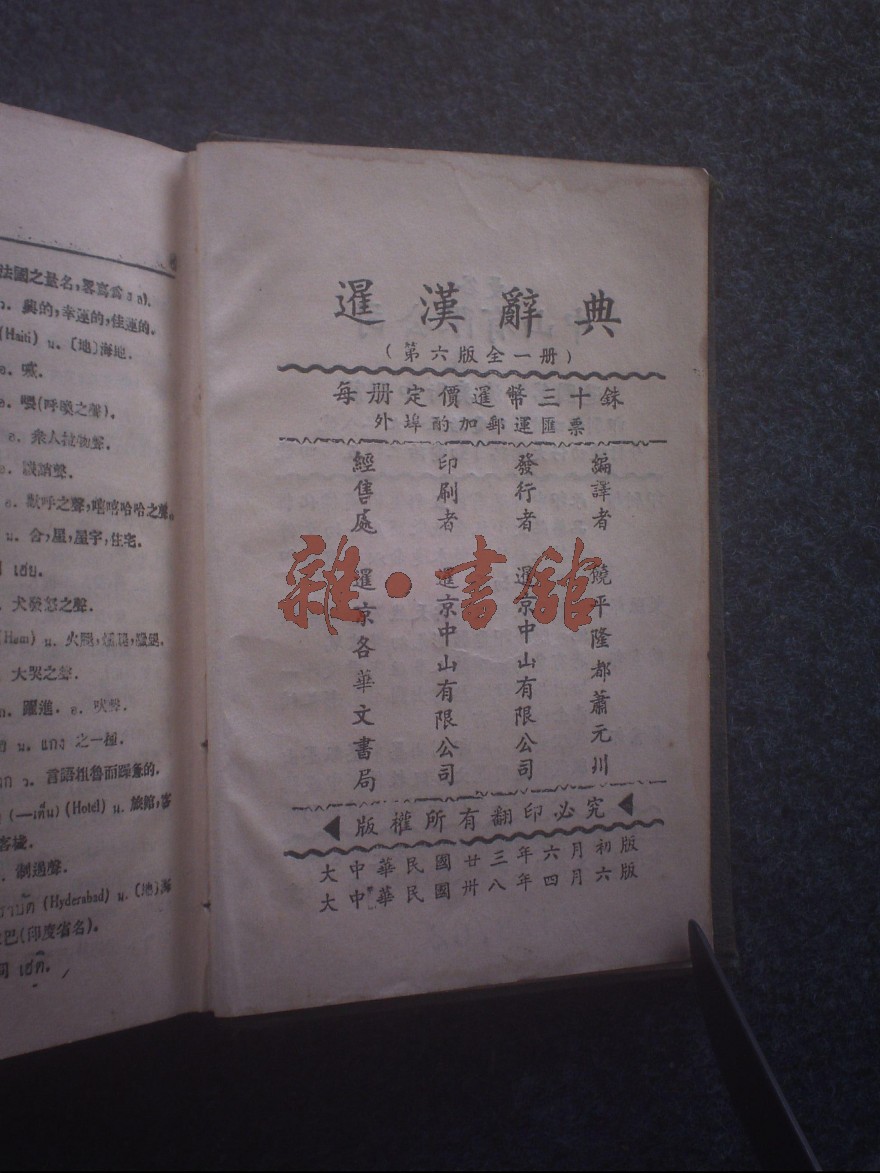 法國之量名,畧寫爲
的,幸運的,佳運的.
(Haiti) น. 〔地〕海地.
(呼喚之聲).
อ. 衆人拉物聲.
อ. 歡呼之聲,嘻嘻哈哈之聲.
น. 合,星,星宇,住宅.
เฮย.
犬發怒之聲.
(Ham) น. 火腿,
大哭之聲.
躍進. อ. 吹聲.
น. แกง 之一種.
ว. 言語粗魯而
(—เต็น) (Hotel) น. 旅館,客
客棧.
制過聲.
(Hyderabad) น. 〔地〕海
巴(印度省名).
暹漢辭典
(第六版全一册)
每册定價暹幣三十銖
外埠酌加郵運匯票
編譯者 饒平隆都蕭元川
發行者 暹京中山有限公司
印刷者 暹京中山有限公司
經售處 暹京各華文書局
版權所有翻印必究
大中華民國廿三年六月初版
大中華民國卅八年四月六版
雜·書館